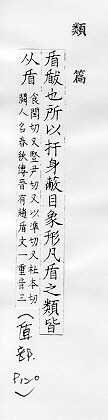 類篇
盾瞂也所以扞身蔽目象形凡盾之類皆
从盾食閏切又竪尹切又以準切又杜本切
闕人名春秋傳晉有趙盾文一重音三
(盾部. P120)